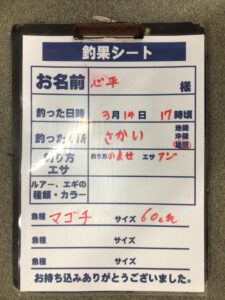 釣果シート
お名前 心平 様
釣った日時 3月14日 17時頃
釣った場所 さかい 地磯 沖磯 堤防
釣り方 エサ 釣り方 のませ エサ アジ
ルアー、エギの種類・カラー
魚種 マゴチ サイズ 60cm
魚種 サイズ
魚種 サイズ
お持ち込みありがとうございました。